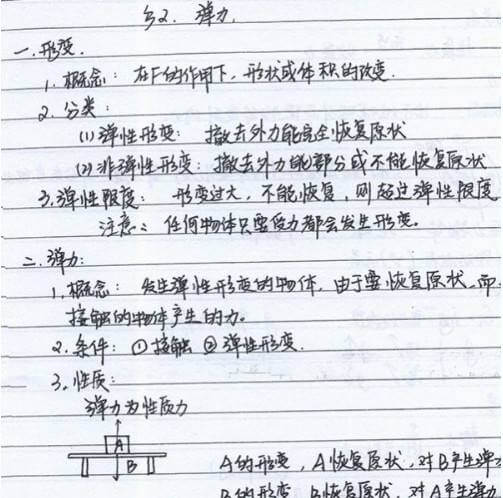 §2. 弹力.
一.形变.
1. 概念: 在F的作用下, 形状或体积的改变.
2. 分类:
(1) 弹性形变: 撤去外力能完全恢复原状
(2) 非弹性形变: 撤去外力能部分或不能恢复原状
3. 弹性限度: 形变过大, 不能恢复, 则超过弹性限度
注意: 任何物体只要受力都会发生形变.
二. 弹力:
1. 概念: 发生弹性形变的物体, 由于要恢复原状, 而
接触的物体产生的力.
2. 条件: ①接触 ②弹性形变.
3. 性质:
弹力为性质力
A
B
A的形变, A恢复原状, 对B产生弹
B的形变 B恢复原状, 对A产生弹力